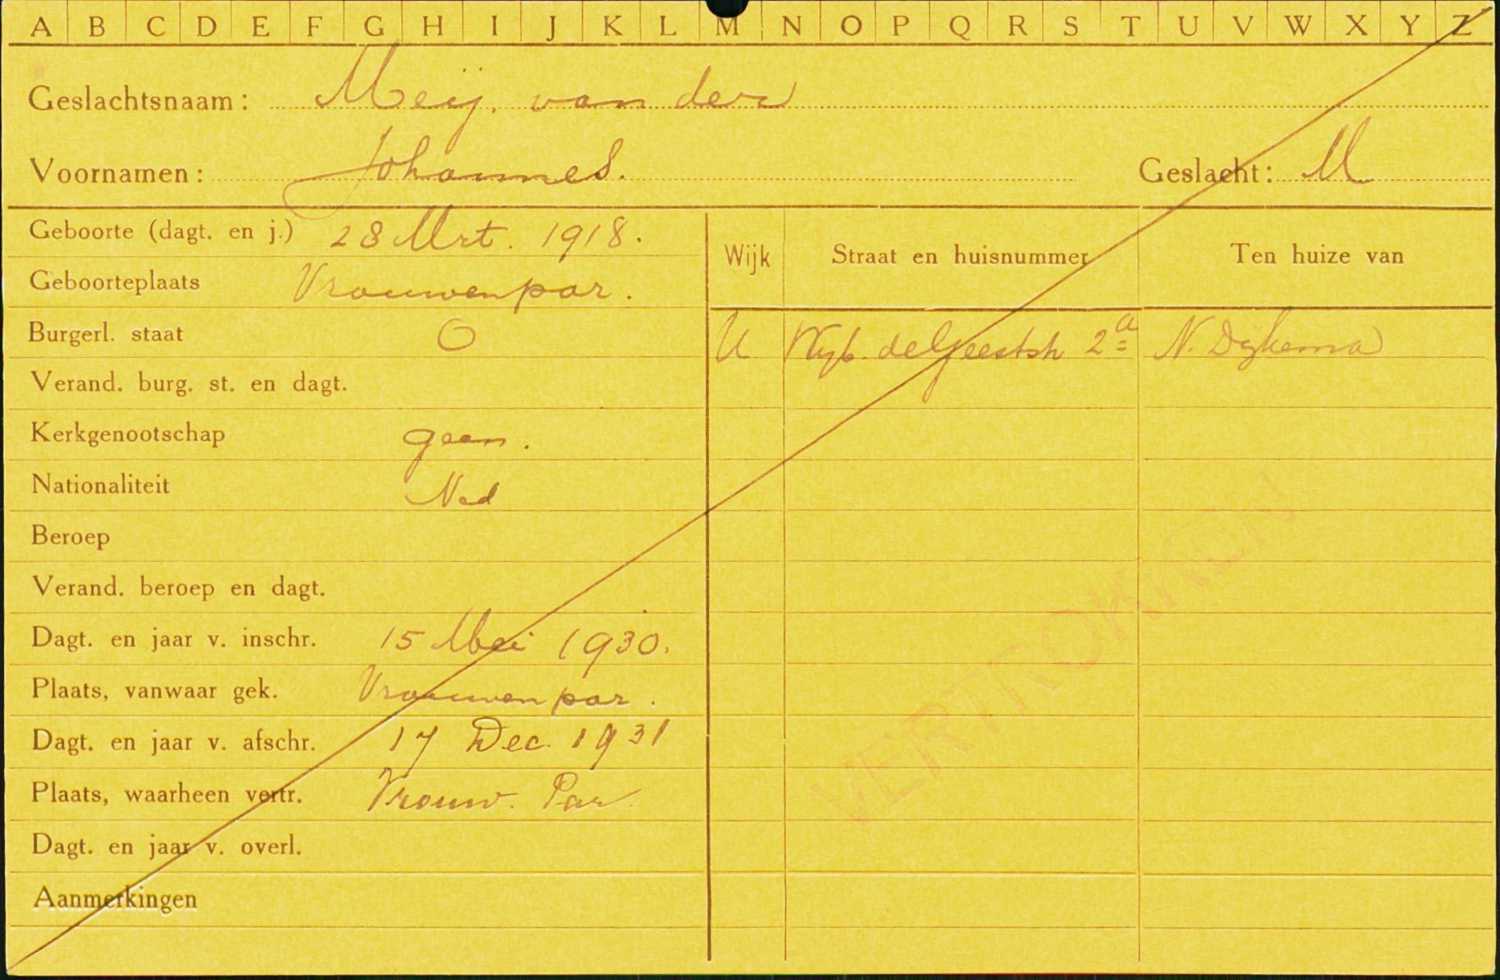 A B C D E F G H I J K L M N O P Q R S T U V W X Y Z
Geslachtsnaam: Meij. van der
Voornamen: Johannes. Geslacht: M
Geboorte (dagt. en j.) 28 Mrt. 1918.
Geboorteplaats Vrouwenpar.
Burgerl. staat O
Verand. burg. st. en dagt.
Kerkgenootschap geen.
Nationaliteit Ned
Beroep
Verand. beroep en dagt.
Dagt. en jaar v. inschr. 15 Mei 1930.
Plaats, vanwaar gek. Vrouwenpar.
Dagt. en jaar v. afschr. 17 Dec. 1931
Plaats, waarheen vertr. Vrouw. Par.
Dagt. en jaar v. overl.
Aanmerkingen
Wijk Straat en huisnummer Ten huize van
U Wyb. de Geeststr 2a N. Dykema
VERTROKKEN